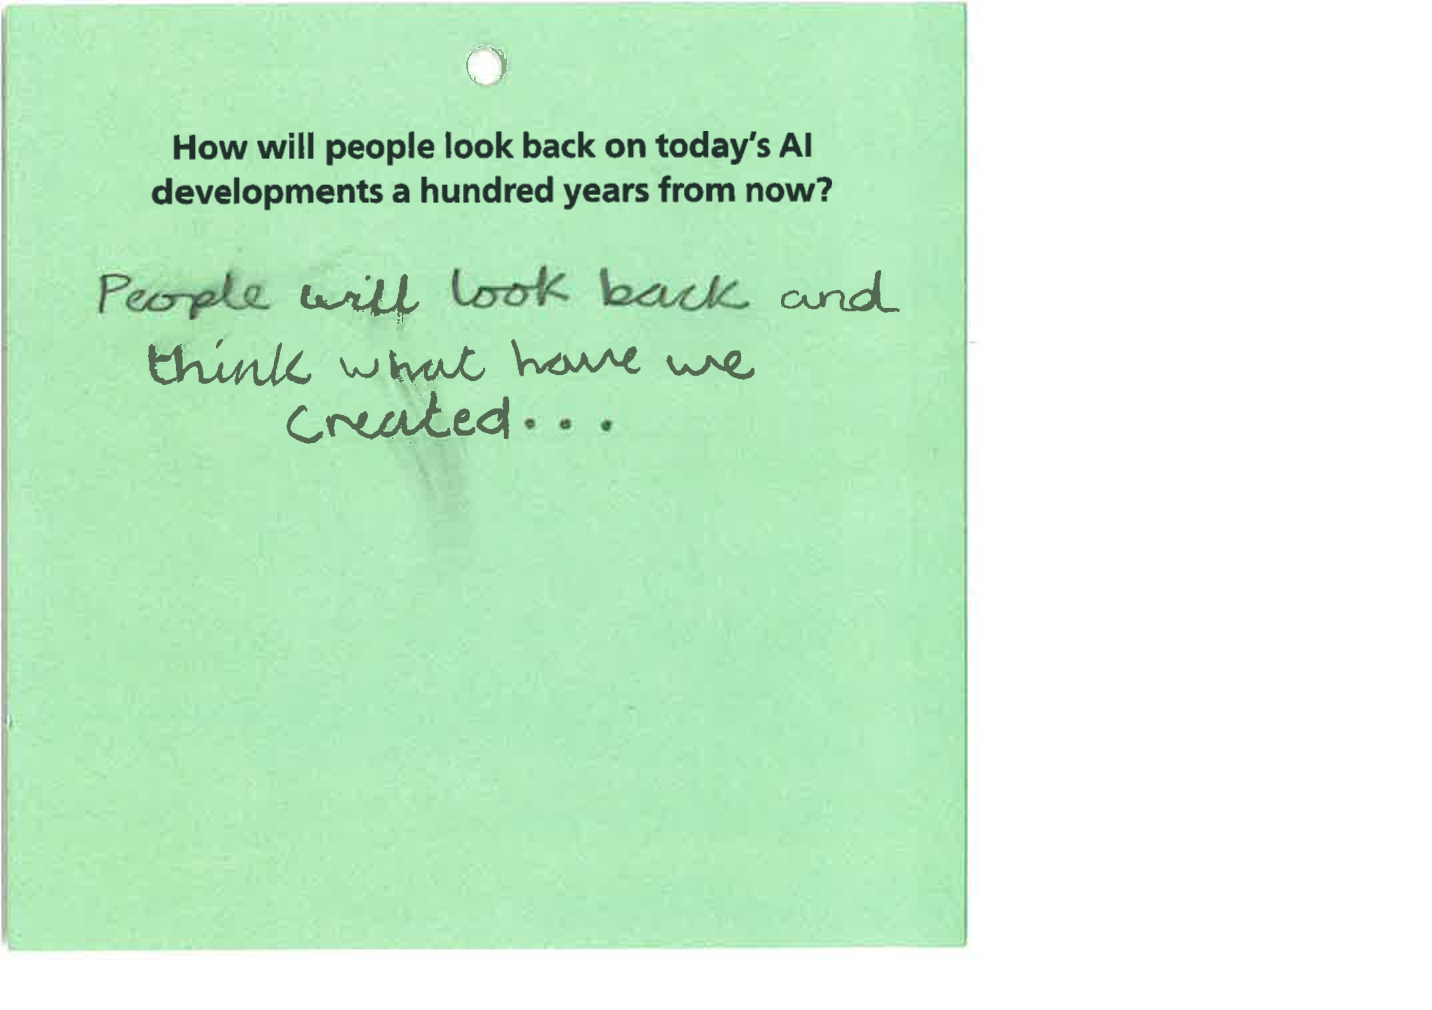 How will people look back on today's AI
developments a hundred years from now?
People will look back and
think what have we
created...